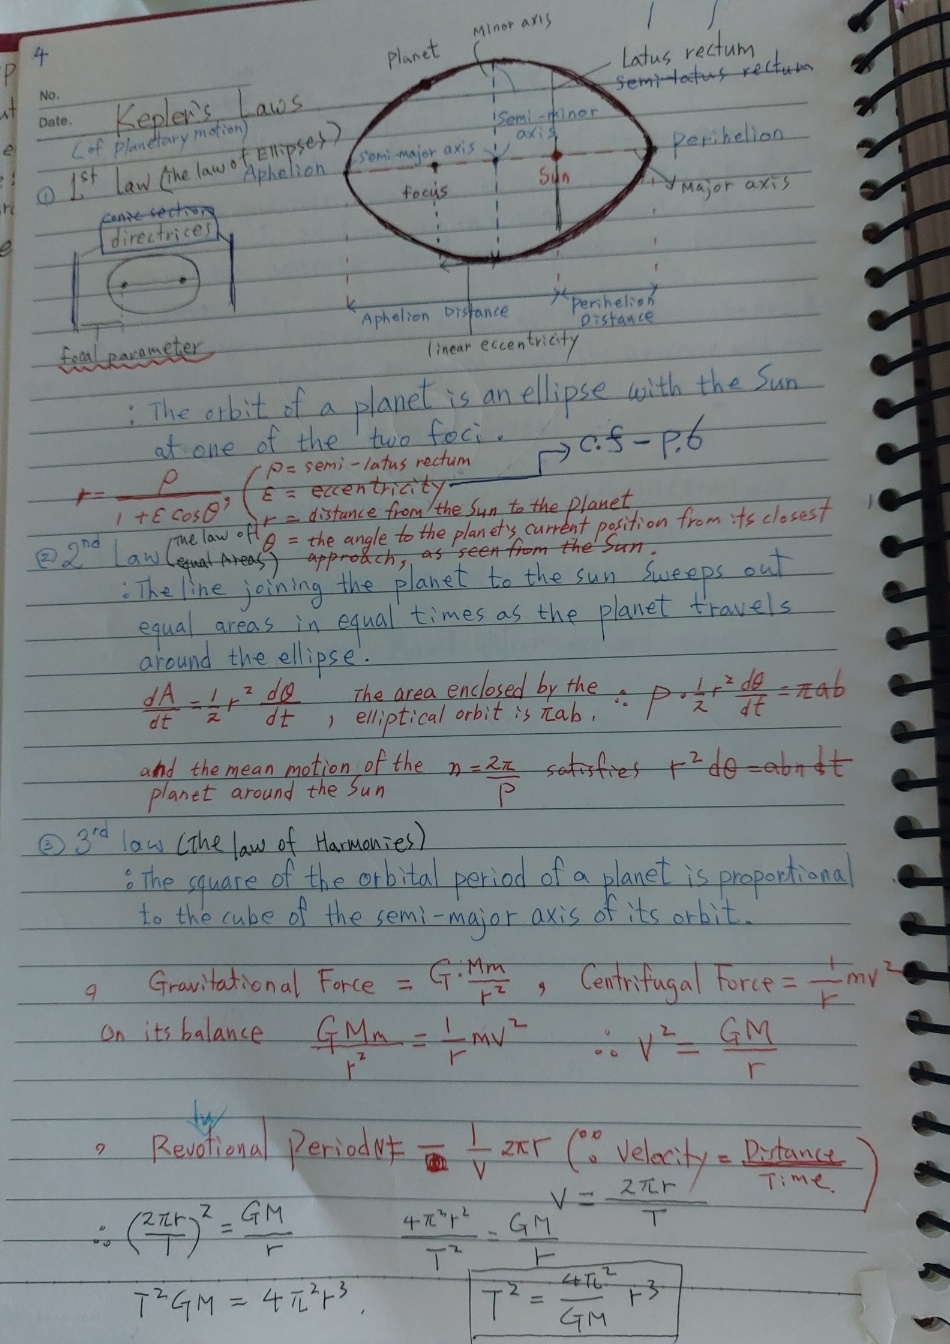 4
No.
Date.
Kepler's Laws
(of planetary motion)
① 1st Law (the law of Ellipses)
Planet
Minor axis
Latus rectum
semi-latus rectum
Semi-minor
axis
Perihelion
semi-major axis
Aphelion
focus
Sun
Major axis
conic section
directrices
Aphelion Distance
Perihelion
Distance
linear eccentricity
focal parameter
: The orbit of a planet is an ellipse with the Sun
at one of the two foci.
c.f - p.6
r = p / 1 + ε cosθ , ( p = semi-latus rectum
ε = eccentricity
r = distance from the Sun to the Planet
θ = the angle to the planet's current position from its closest
approach, as seen from the Sun.
② 2nd Law (the law of equal Areas)
: The line joining the planet to the sun sweeps out
equal areas in equal times as the planet travels
around the ellipse.
dA/dt = 1/2 r² dθ/dt , The area enclosed by the elliptical orbit is πab. ∴ P · 1/2 r² dθ/dt = πab
and the mean motion of the planet around the Sun n = 2π/P satisfies r² dθ = abn dt
③ 3rd law (The law of Harmonies)
: The square of the orbital period of a planet is proportional
to the cube of the semi-major axis of its orbit.
Gravitational Force = G · Mm/r² , Centrifugal Force = 1/r mv²
On its balance GMm/r² = 1/r mv² ∴ v² = GM/r
Revotional Period = 1/v 2πr (∵ Velocity = Distance/Time.)
V = 2πr/T
∴ (2πr/T)² = GM/r 4π²r²/T² = GM/r
T²GM = 4π²r³. T² = 4π²/GM r³